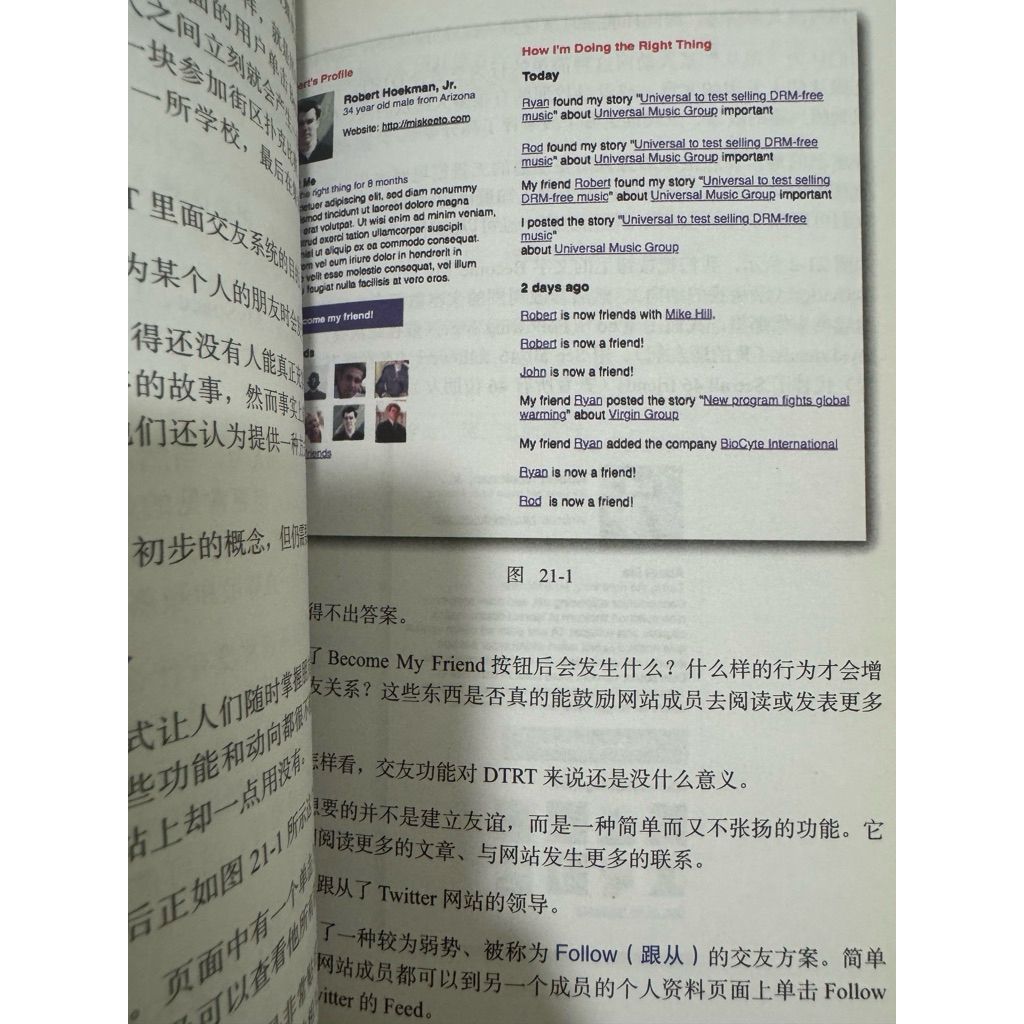 面的用户单击
之间立刻就会产生
一块参加街区扑克比
一所学校，最后在
T 里面交友系统的目的
为某个人的朋友时会
得还没有人能真正
的故事，然而事实上
们还认为提供一种
初步的概念，但仍需
式让人们随时掌握
些功能和动向都很
站上却一点用没有。
后正如图 21-1 所示
页面中有一个单击
可以查看他所
ert's Profile
Robert Hoekman, Jr.
34 year old male from Arizona
Website: http://miskeeto.com
Me
the right thing for 8 months
etuer adipiscing elit, sed diam nonummy
smod tincidunt ut laoreet dolore magna
erat volutpat. Ut wisi enim ad minim veniam,
trud exerci tation ullamcorper suscipit
nisl ut aliquip ex ea commodo consequat.
em vel eum iriure dolor in hendrerit in
e velit esse molestie consequat, vel illum
feugiat nulla facilisis at vero eros.
come my friend!
ds
friends
How I'm Doing the Right Thing
Today
Ryan found my story "Universal to test selling DRM-free
music" about Universal Music Group important
Rod found my story "Universal to test selling DRM-free
music" about Universal Music Group important
My friend Robert found my story "Universal to test selling
DRM-free music" about Universal Music Group important
I posted the story "Universal to test selling DRM-free
music"
about Universal Music Group
2 days ago
Robert is now friends with Mike Hill.
Robert is now a friend!
John is now a friend!
My friend Ryan posted the story "New program fights global
warming" about Virgin Group
My friend Ryan added the company BioCyte International
Ryan is now a friend!
Rod is now a friend!
图 21-1
得不出答案。
了 Become My Friend 按钮后会发生什么？什么样的行为才会增
友关系？这些东西是否真的能鼓励网站成员去阅读或发表更多
怎样看，交友功能对 DTRT 来说还是没什么意义。
想要的并不是建立友谊，而是一种简单而又不张扬的功能。它
阅读更多的文章、与网站发生更多的联系。
跟从了 Twitter 网站的领导。
了一种较为弱势、被称为 Follow（跟从）的交友方案。简单
网站成员都可以到另一个成员的个人资料页面上单击 Follow
witter 的 Feed。